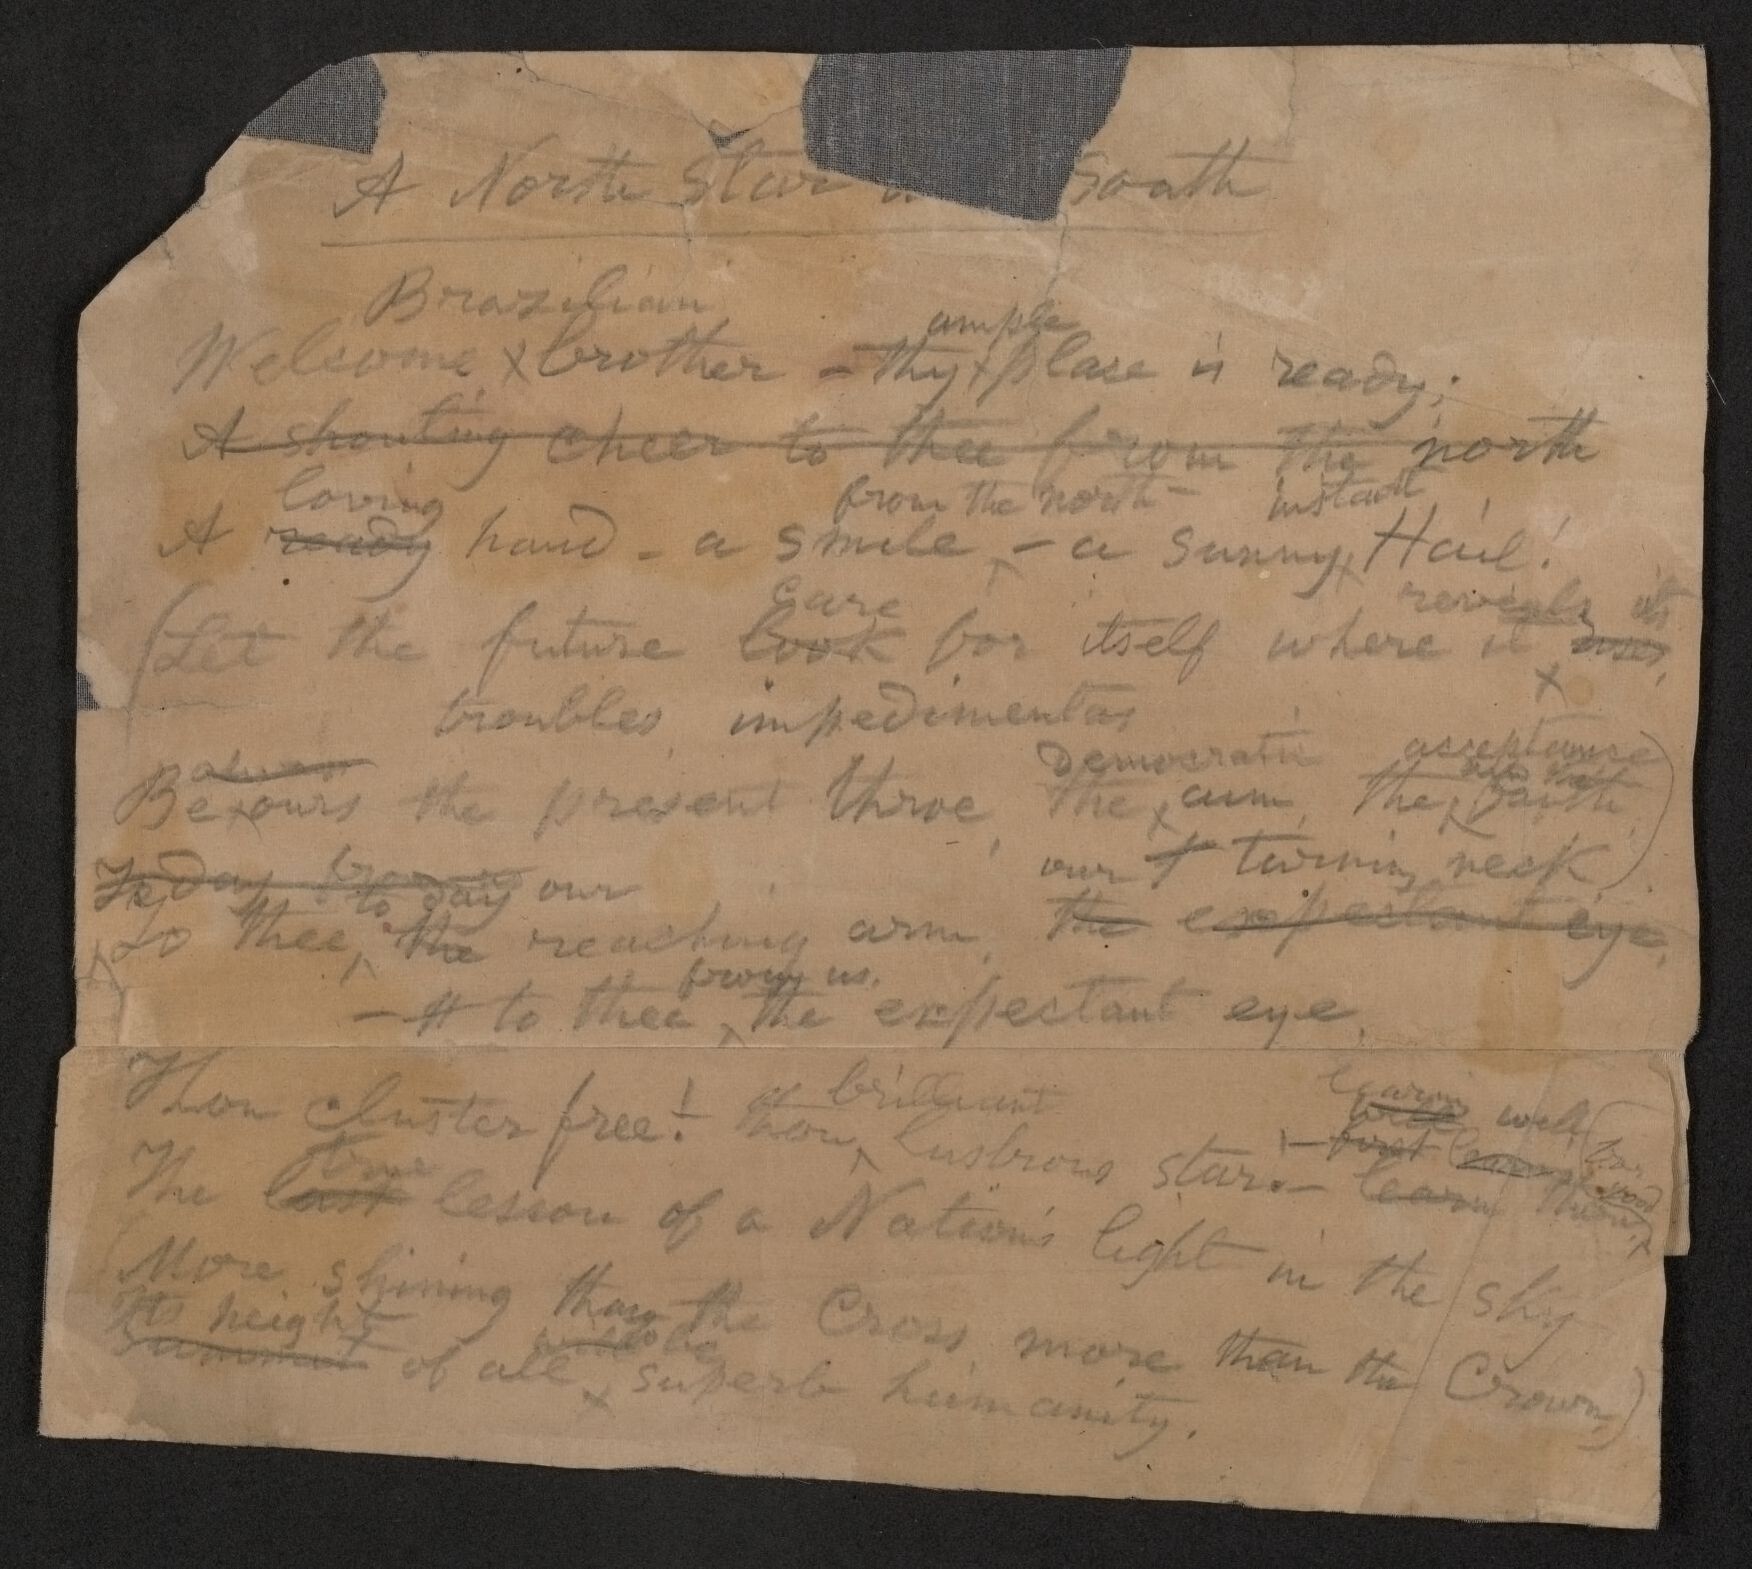 A North Star South
Brazilian
ample
Welcome brother – thy place is ready;
A shouting cheer to thee from the north
loving from the north – instant
A ready hand – a smile – a sunny Hail!
care reveals its
(Let the future look for itself where it
troubles, impedimentas
Democratic acceptance
Be ours the present throe, the aim, the faith,
our turning neck)
To day from to day our
To thee, the reaching arm, the expectant eye,
from us,
– to thee, the expectant eye,
brilliant learning well
Thou cluster free! thou, lustrous star – first learn
true
The last lesson of a Nation's light in the sky
(More shining than the Cross more than the Crown,)
Its height to be
Summit of all superb humanity.